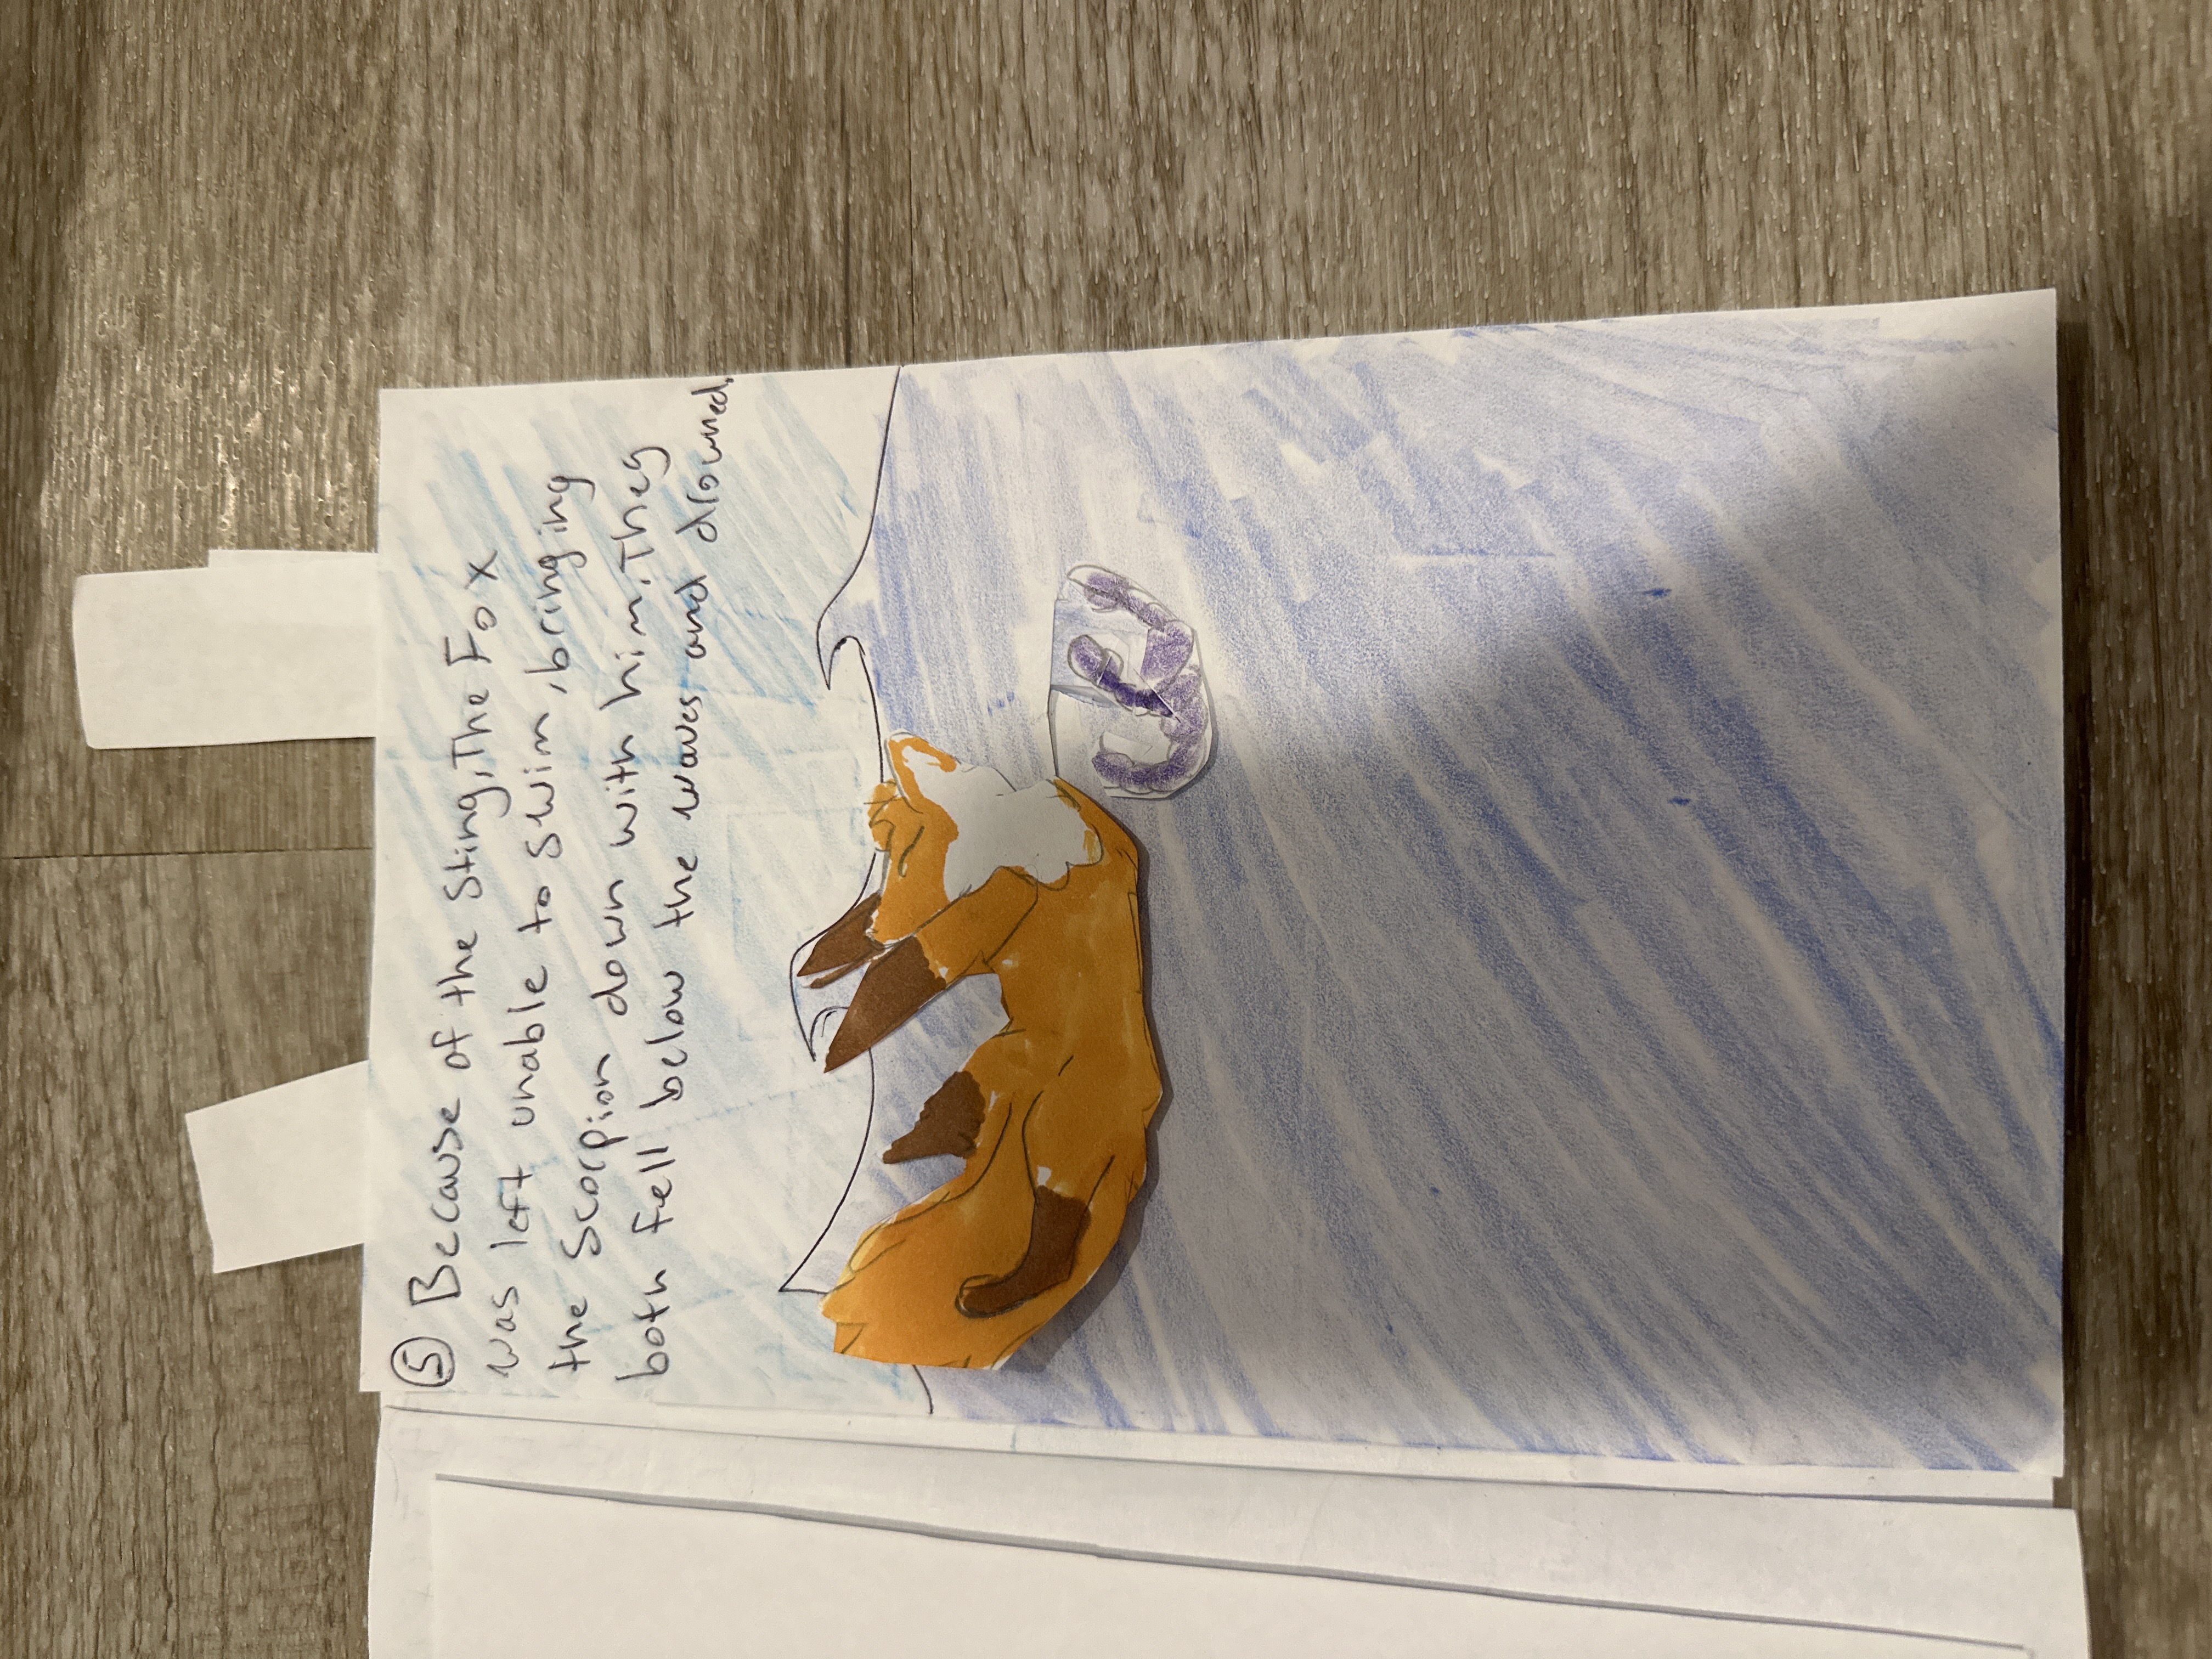 ⑤ Because of the Sting, The Fox
was left unable to swim, bringing
the Scorpion down with him. They
both fell below the waves and drowned.